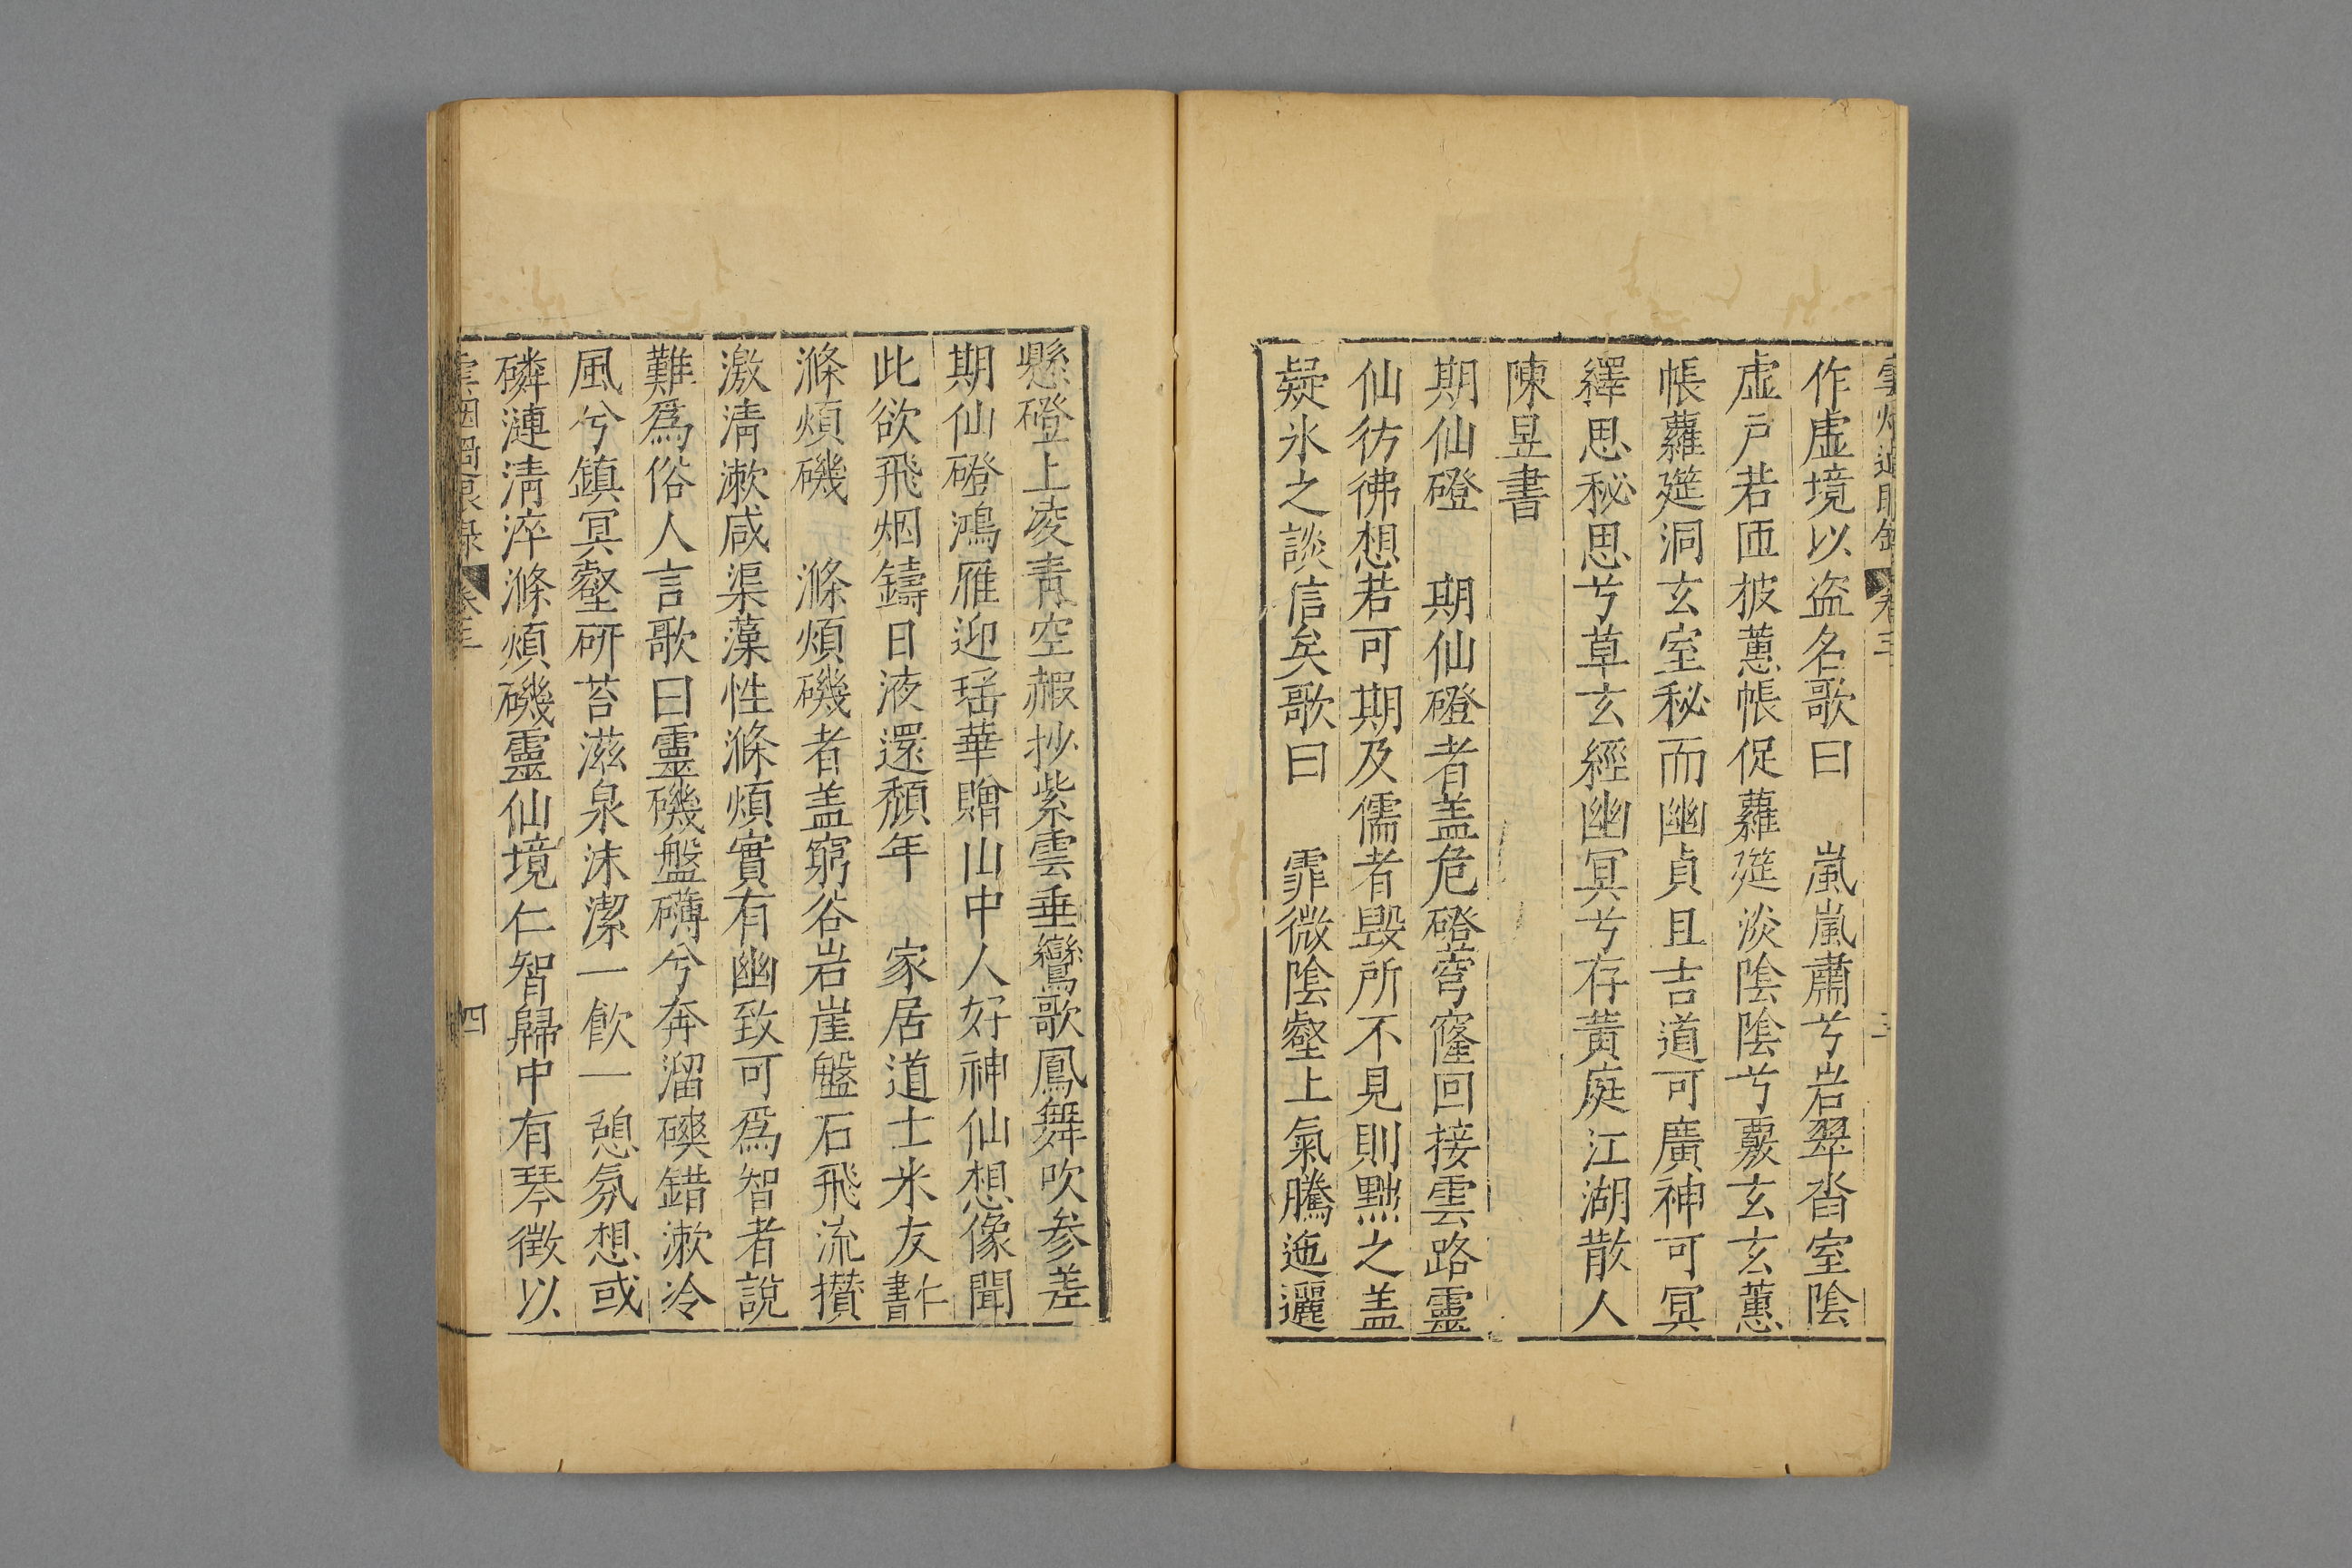 雲烟過眼錄 卷三 三
作虛境以盗名歌曰 嵐嵐肅兮岩翠沓室陰
虛戶若匝披蕙帳促蘿筵淡陰陰兮覈玄玄蕙
帳蘿筵洞玄室秘而幽貞且吉道可廣神可冥
繹思秘思兮草玄經幽冥兮存黃庭江湖散人
陳昱書
期仙磴 期仙磴者盖危磴穹窿回接雲路靈
仙彷彿想若可期及儒者毀所不見則黙之盖
疑氷之談信矣歌曰 霏微陰壑上氣騰迤邐
懸磴上凌青空赮抄紫雲垂鸞歌鳳舞吹參差
期仙磴鴻雁迎瑶華贈山中人好神仙想像聞
此欲飛烟鑄日液還頽年 家居道士米友仁書
滌煩磯 滌煩磯者盖窮谷岩崖盤石飛流攢
激清漱咸渠藻性滌煩實有幽致可爲智者說
難爲俗人言歌曰靈磯盤礴兮奔溜磢錯漱冷
風兮鎮冥壑研苔滋泉沫潔一飲一憩氛想或
磷漣清淬滌煩磯靈仙境仁智歸中有琴徵以
雲烟過眼錄 卷三 四